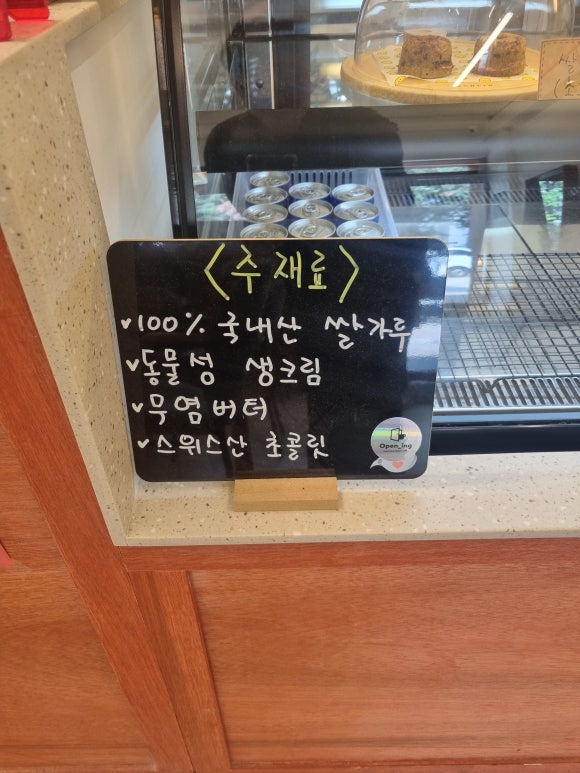 <주재료>
✓100% 국내산 쌀가루
✓동물성 생크림
✓무염버터
✓스위스산 초콜릿
Open_ing
쌀